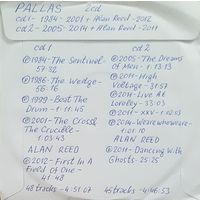 PALLAS 2cd
cd1 - 1984 - 2001 + Alan Reed - 2012
cd2 - 2005 - 2014 + Alan Reed - 2011
cd 1
℗1984-The Sentinel-
57:32
℗1986-The Wedge-
56:16
℗1999-Beat The
Drum - 1:11:45
℗2001-The Cross&
The Crucible -
1:03:43
ALAN REED
℗2012-First In A
Field of One -
41:48
48tracks - 4:51:07
cd 2
℗2005-The Dreams
Of Men - 1:13:13
℗2011-High
Voltage - 31:57
℗2011-Live At
Loreley - 33:03
℗2011-XXV - 1:02:03
℗2014-Wearewhoweare-
1:01:10
ALAN REED
℗2011-Dancing With
Ghosts - 25:25
45tracks - 4:46:53